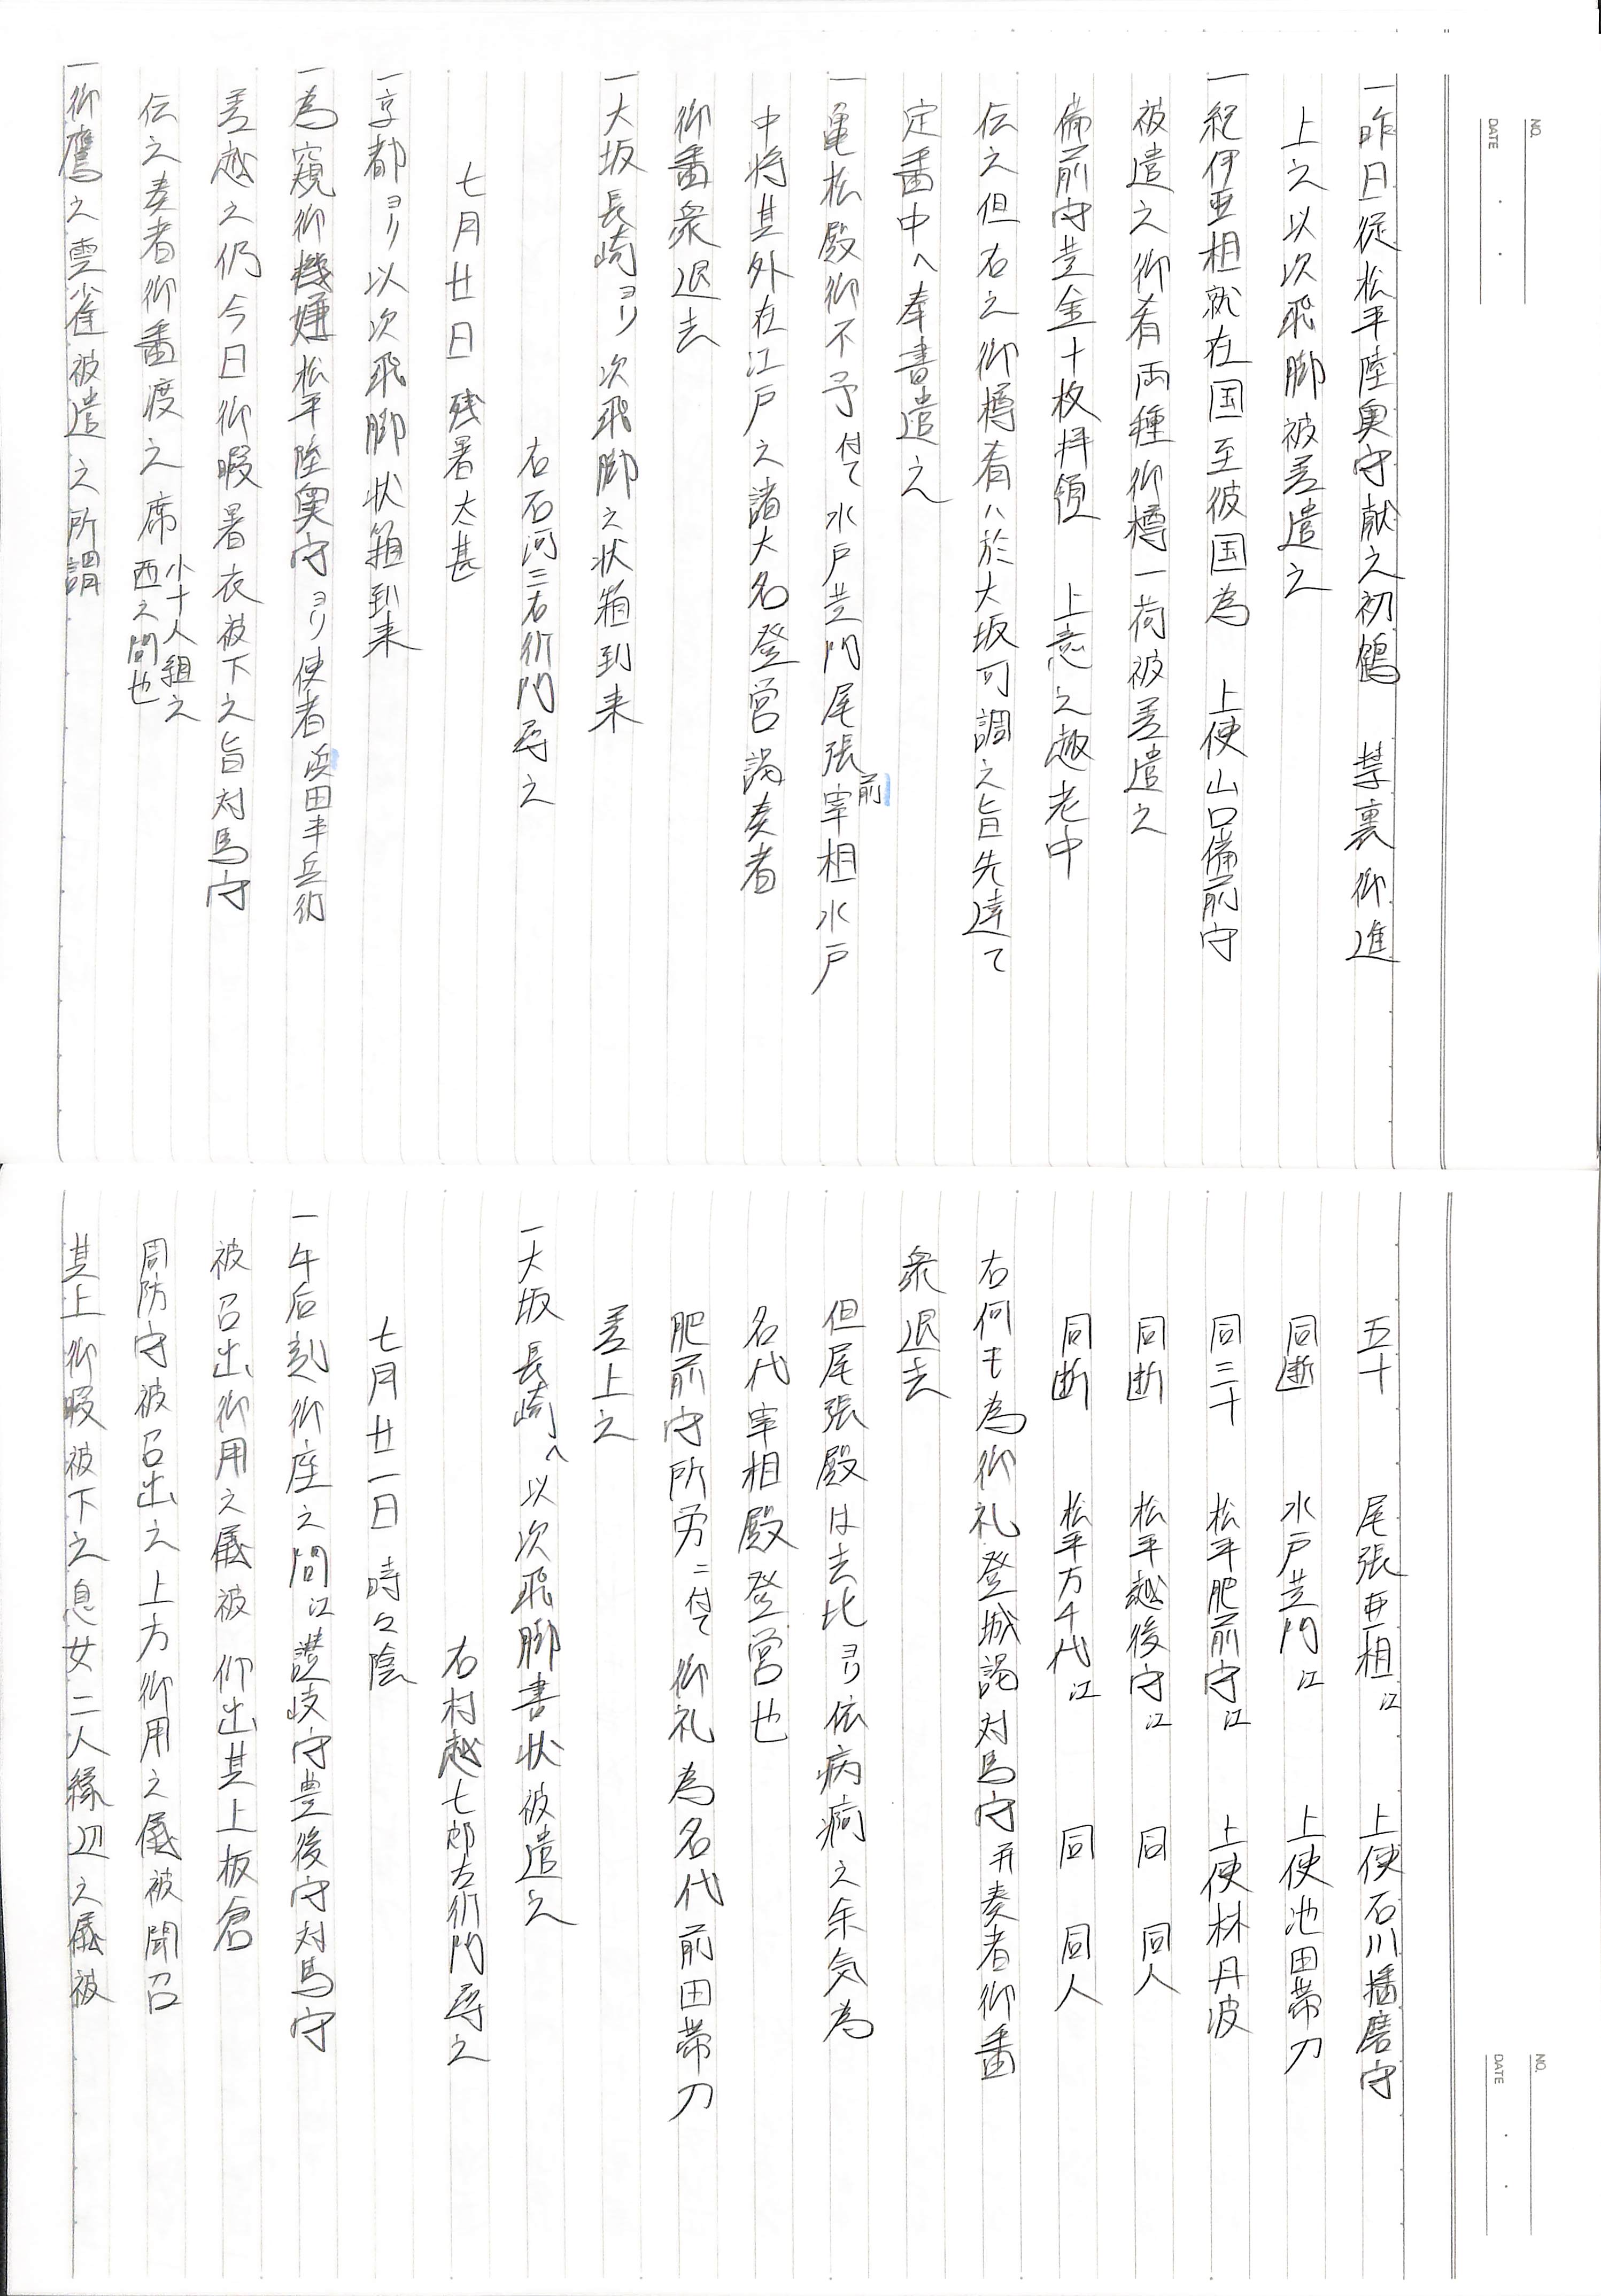 NO.
DATE
一昨日従松平陸奥守献之初鶴　禁裏御進
上之以次飛脚被差遣之
一紀伊亜相就在国至彼国為　上使山口備前守
被遣之御肴両種御樽一荷被差遣之
備前守黄金十枚拝領　上意之趣老中
伝之但右之御樽肴ハ於大坂可調之旨先達て
定番中へ奉書遣之
一亀松殿御不予付て水戸黄門尾張前宰相水戸
中将其外在江戸之諸大名登営謁奏者
御番衆退去
一大坂長崎ヨリ次飛脚之状箱到来
右石河三右衛門届之
七月廿日 残暑太甚
一京都ヨリ以次飛脚状箱到来
一為窺御機嫌松平陸奥守ヨリ使者浜田半兵衛
差越之仍今日御暇暑衣被下之旨対馬守
伝之奏者御番渡之席小十人組之
西之間也
一御鷹之雲雀被遣之所謂
NO.
DATE
五十　尾張亜相江　上使石川播磨守
同断　水戸黄門江　上使池田帯刀
同三十　松平肥前守江　上使林丹波
同断　松平越後守江　同　同人
同断　松平万千代江　同　同人
右何も為御礼登城謁対馬守并奏者御番
衆退去
但尾張殿は去比ヨリ依病痾之余気為
名代宰相殿登営也
肥前守所労ニ付て御礼為名代前田帯刀
差上之
一大坂長崎へ以次飛脚書状被遣之
右村越七郎左衛門届之
七月廿一日 時々陰
一午后刻御座之間江讃岐守豊後守対馬守
被召出御用之儀被　仰出其上板倉
周防守被召出之上方御用之儀被聞召
其上御暇被下之息女二人縁辺之儀被